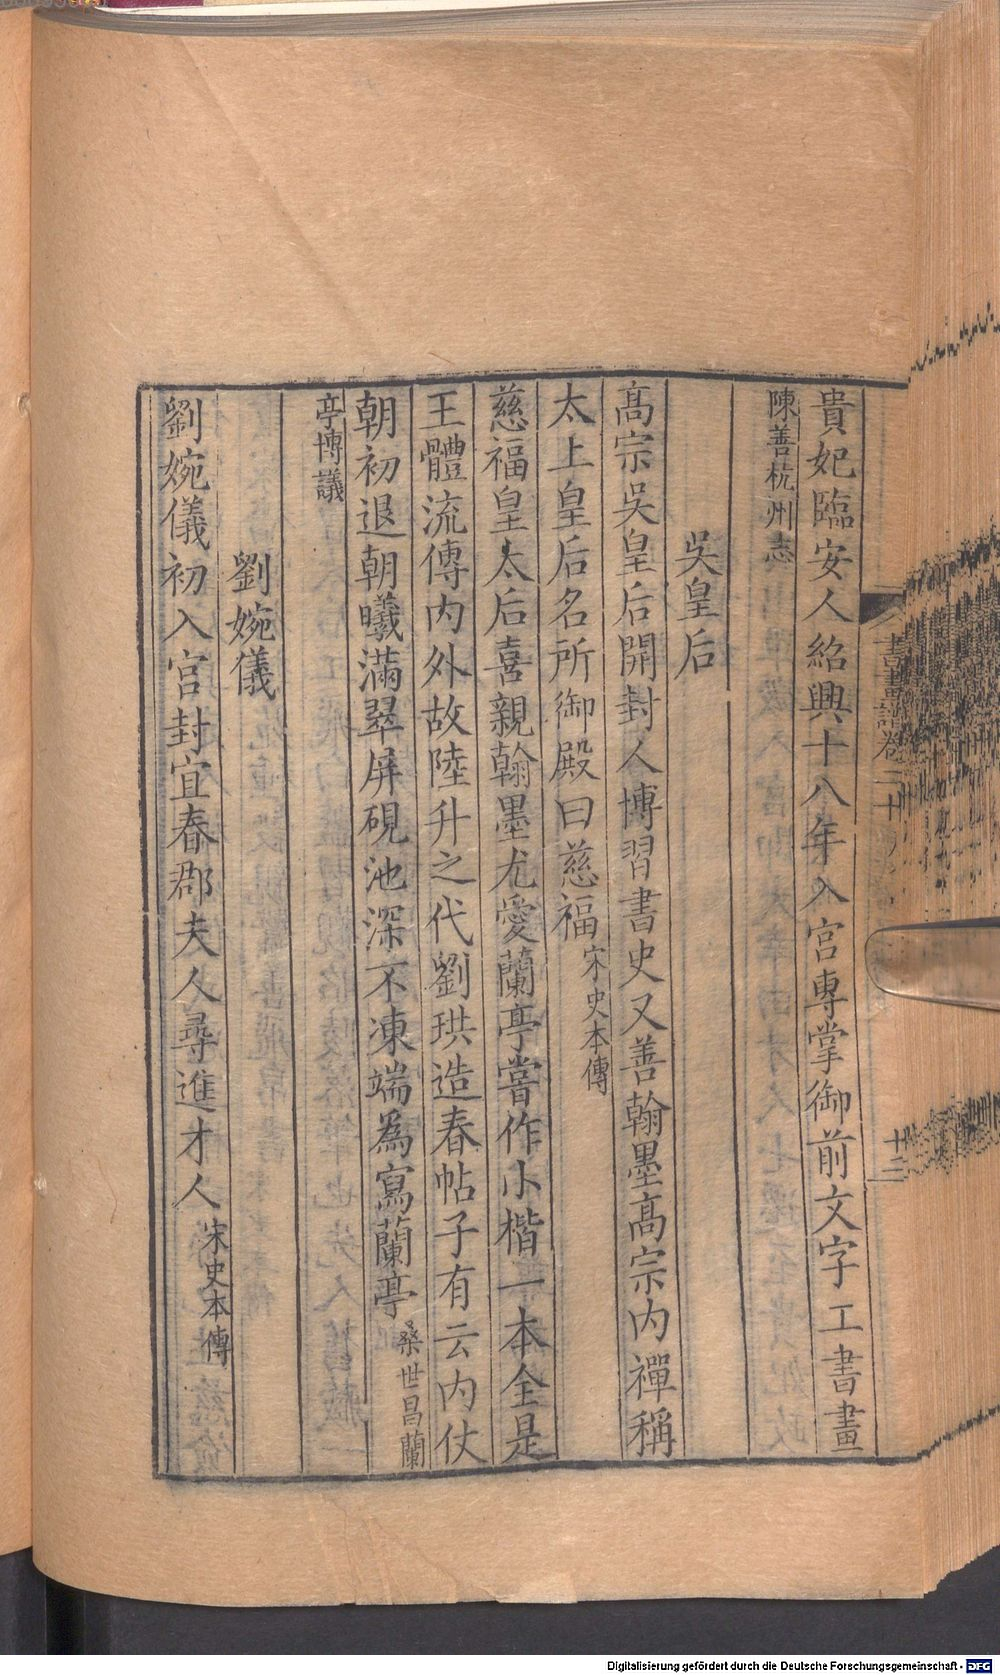 貴妃臨安人紹興十八年入宮專掌御前文字工書畫
陳善杭州志
吳皇后
高宗吳皇后開封人博習書史又善翰墨高宗内禪稱
太上皇后名所御殿曰慈福宋史本傳
慈福皇太后喜親翰墨尤愛蘭亭嘗作小楷一本全是
王體流傳内外故陸升之代劉珙造春帖子有云内仗
朝初退朝曦滿翠屏硯池深不凍端爲寫蘭亭桑世昌蘭
亭博議
劉婉儀
劉婉儀初入宮封宜春郡夫人尋進才人宋史本傳
書畫譜卷
十三
Digitalisierung gefördert durch die Deutsche Forschungsgemeinschaft - DFG